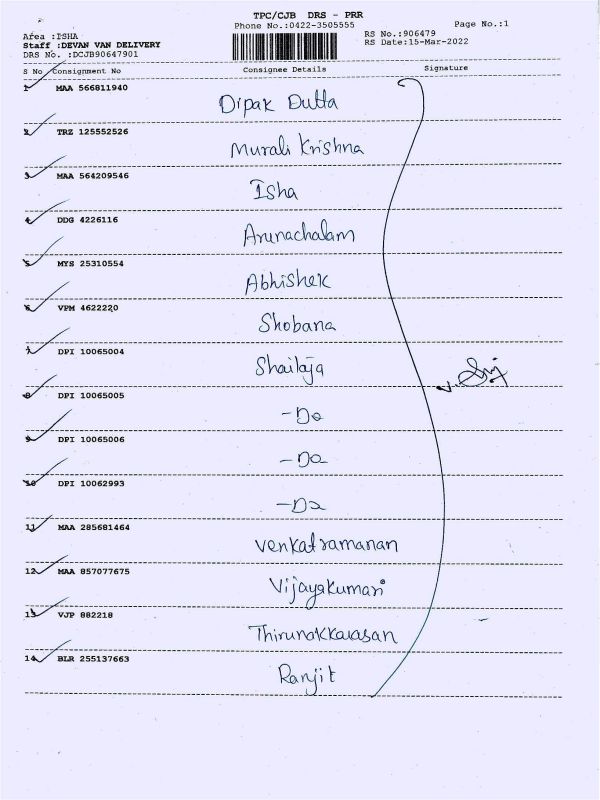 TPC/CJB DRS - PRR
Phone No.:0422-3505555
Page No.:1
Area :ISHA
RS No.:906479
Staff :DEVAN VAN DELIVERY
RS Date:15-Mar-2022
DRS No. :DCJB90647901
S No Consignment No Consignee Details Signature
1 MAA 566811940
Dipak Dutta
2 TRZ 125552526
Murali Krishna
3 MAA 564209546
Isha
4 DDG 4226116
Arunachalam
5 MYS 25310554
Abhishek
6 VPM 4622220
Shobana
7 DPI 10065004
Shailaja
8 DPI 10065005
-Do
9 DPI 10065006
-Do
10 DPI 10062993
-Do
11 MAA 285681464
Venkatramanan
12 MAA 857077675
Vijayakumari
13 VJP 882218
Thirunakkarasan
14 BLR 255137663
Ranjit